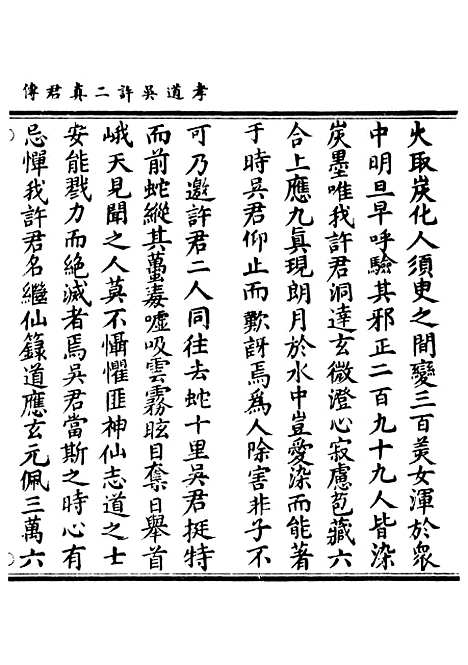 孝道吳許二真君傳
火取炭化人須臾之間變三百美女渾於衆
中明旦早呼驗其邪正二百九十九人皆染
炭墨唯我許君洞達玄微澄心寂慮苞藏六
合上應九真現朗月於水中豈愛染而能著
于時吳君仰止而歎訝焉為人除害非子不
可乃邀許君二人同往去蛇十里吳君挺特
而前蛇縱其蠆毒噓吸雲霧眩目奪日舉首
峨天見聞之人莫不懾懼匪神仙志道之士
安能戮力而絕滅者焉吳君當斯之時心有
忌憚我許君名繼仙籙道應玄元佩三萬六